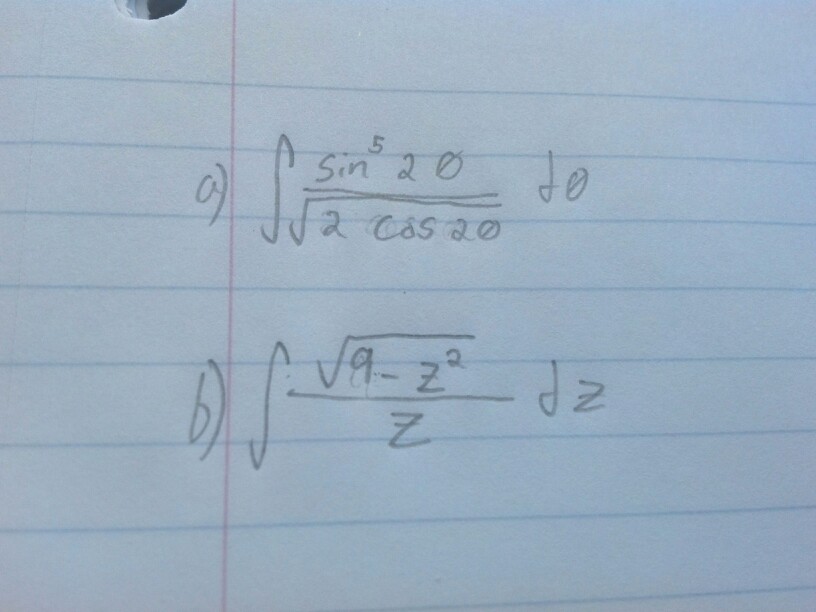 a) ∫ sin⁵ 2θ / √(2 cos 2θ) dθ
b) ∫ √(9 - z²) / z dz